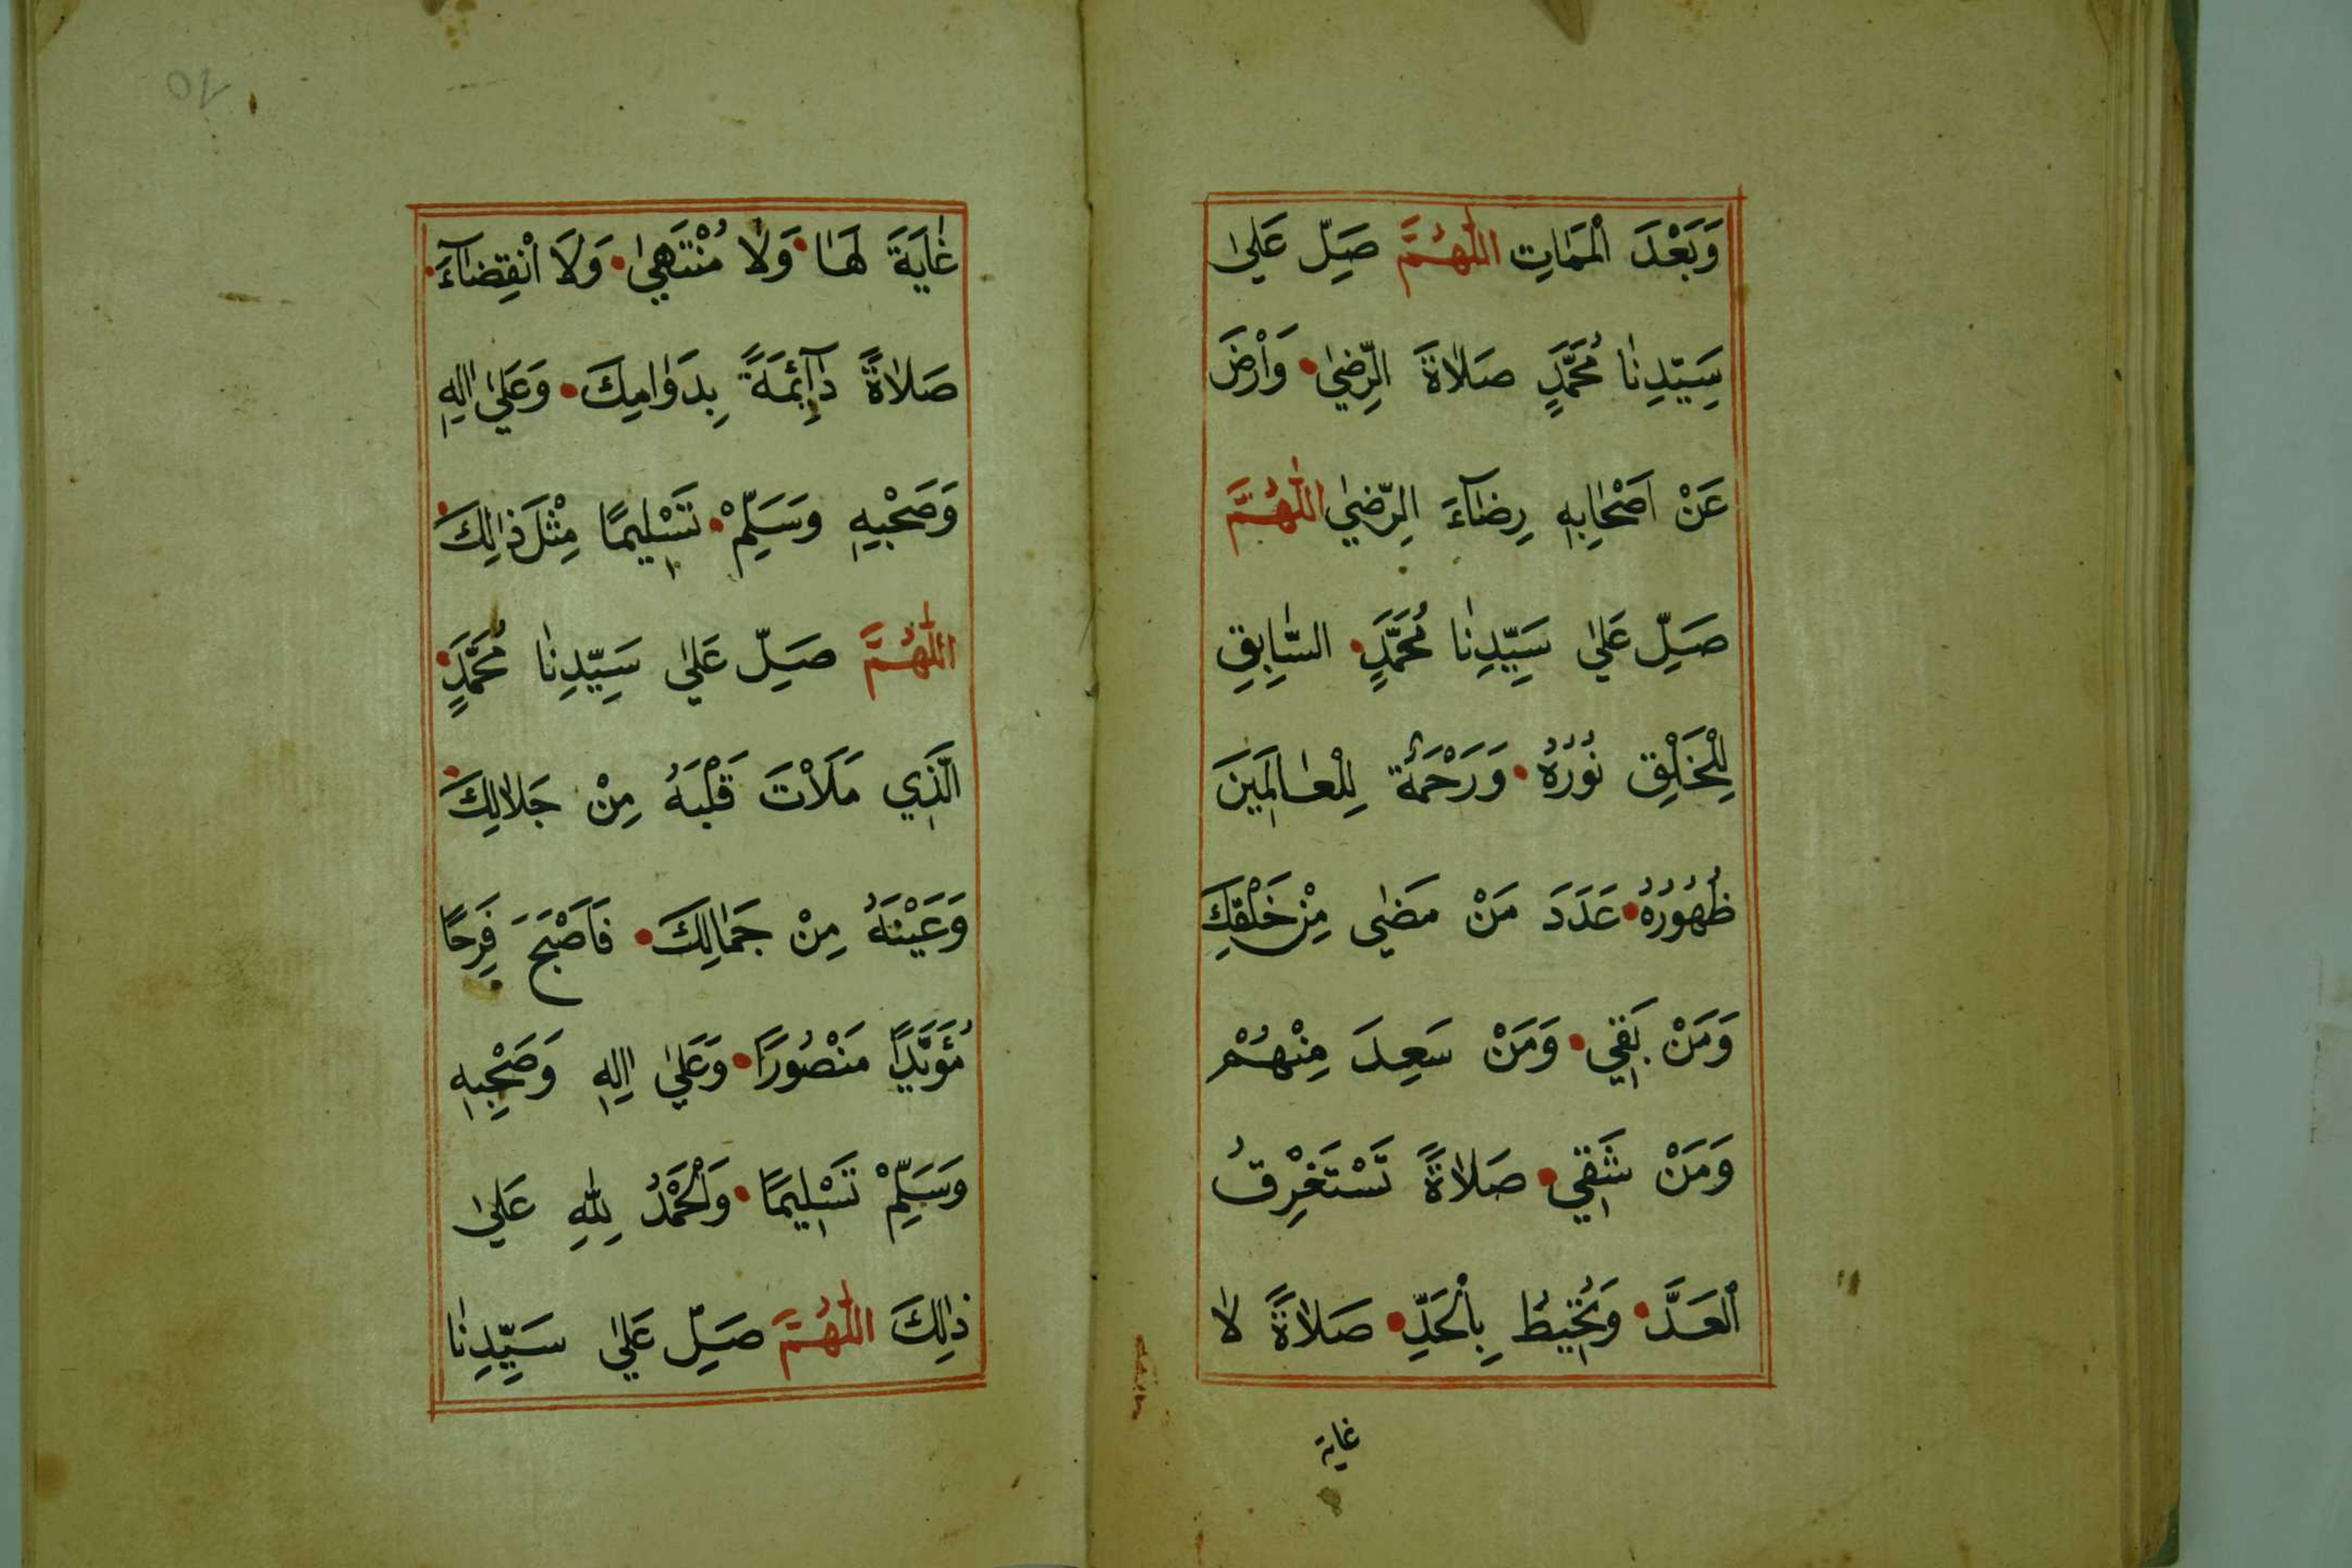 وَبَعْدَ الْمَمَاتِ اللّٰهُمَّ صَلِّ عَلٰى
سَيِّدِنَا مُحَمَّدٍ صَلَاةَ الرِّضٰي وَارْضَ
عَنْ اَصْحَابِهِ رِضَآءَ الرِّضٰي اللّٰهُمَّ
صَلِّ عَلٰي سَيِّدِنَا مُحَمَّدٍ السَّابِقِ
لِلْخَلْقِ نُوُرُهُ وَرَحْمَةٌ لِلْعَالَمِينَ
ظُهُوُرُهُ عَدَدَ مَنْ مَضٰي مِنْ خَلْقِكَ
وَمَنْ بَقِيَ وَمَنْ سَعِدَ مِنْهُمْ
وَمَنْ شَقِيَ صَلَاةً تَسْتَغْرِقُ
الْعَدَّ وَتُحِيطُ بِالْحَدِّ صَلَاةً لَا
غاية
غَايَةَ لَهَا وَلَا مُنْتَهٰي وَلَا انْقِضَآءَ
صَلَاةً دَآئِمَةً بِدَوَامِكَ وَعَلٰي اٰلِهِ
وَصَحْبِهِ وَسَلِّمْ تَسْلِيمًا مِثْلَ ذَالِكَ
اللّٰهُمَّ صَلِّ عَلٰي سَيِّدِنَا مُحَمَّدٍ
الَّذِي مَلَاْتَ قَلْبَهُ مِنْ جَلَالِكَ
وَعَيْنَهُ مِنْ جَمَالِكَ فَاَصْبَحَ فَرِحًا
مُؤَيَّدًا مَنْصُورًا وَعَلٰي اٰلِهِ وَصَحْبِهِ
وَسَلِّمْ تَسْلِيمًا وَالْحَمْدُ لِلّٰهِ عَلٰي
ذٰلِكَ اللّٰهُمَّ صَلِّ عَلٰي سَيِّدِنَا